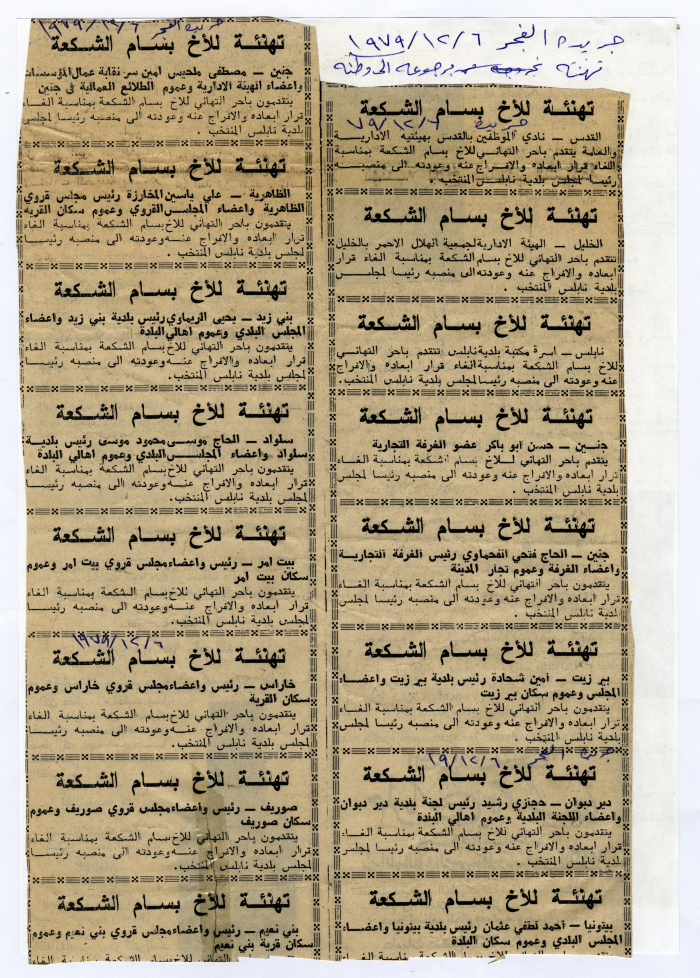 جريدة الفجر ١٩٧٩/١٢/٦
تهنئة برجوعه الى وطنه
تهنئة للأخ بسام الشكعة
جريدة ٧٩/١٢/٦
القدس — نادي الموظفين بالقدس بهيئتيه الاداريـــة
والعامة يتقدم باحر التهاني للأخ بسام الشكعة بمناسبة
الغاء قرار ابعاده والافراج عنه وعودته الى منصبـــه
رئيسا لمجلس بلدية نابلس المنتخب .
تهنئة للأخ بسام الشكعة
الخليل — الهيئة الادارية لجمعية الهلال الاحمر بالخليل
تتقدم باحر التهاني للأخ بسام الشكعة بمناسبة الغاء قرار
ابعاده والافراج عنه وعودته الى منصبه رئيسا لمجلـــس
بلدية نابلس المنتخب .
تهنئة للأخ بسام الشكعة
نابلس — اسرة مكتبة بلدية نابلس تتقدم باحر التهانـــي
للأخ بسام الشكعة بمناسبة الغاء قرار ابعاده والافراج
عنه وعودته الى منصبه رئيسا لمجلس بلدية نابلس المنتخب.
تهنئة للأخ بسام الشكعة
جنـين — حسن ابو باكر عضو الغرفة التجارية
يتقدم باحر التهاني للأخ بسام الشكعة بمناسبة الغـــاء
قرار ابعاده والافراج عنه وعودته الى منصبه رئيسا لمجلس
بلدية نابلس المنتخب .
تهنئة للأخ بسام الشكعة
جنين — الحاج فتحي الفحماوي رئيس الغرفة التجاريـــة
واعضاء الغرفة وعموم تجار المدينة
يتقدمون باحر التهاني للأخ بسام الشكعة بمناسبة الغـاء
قرار ابعاده والافراج عنه وعودته الى منصبه رئيسا لمجلس
بلدية نابلس المنتخب .
تهنئة للأخ بسام الشكعة
بير زيت — امين شحادة رئيس بلدية بير زيت واعضـــاء
المجلس وعموم سكان بير زيت
يتقدمون باحر التهاني للأخ بسام الشكعة بمناسبة الغـاء
قرار ابعاده والافراج عنه وعودته الى منصبه رئيسا لمجلس
بلدية نابلس المنتخب .
جريدة الفجر ١٩/١٢/٦
تهنئة للأخ بسام الشكعة
دير دبوان — حجازي رشيد رئيس لجنة بلدية دير دبوان
واعضاء اللجنة البلدية وعموم اهالي البلدة
يتقدمون باحر التهاني للأخ بسام الشكعة بمناسبة الغاء
قرار ابعاده والافراج عنه وعودته الى منصبه رئيســـا
لمجلس بلدية نابلس المنتخب .
تهنئة للأخ بسام الشكعة
بيتونيا — احمد لطفي عثمان رئيس بلدية بيتونيا واعضـاء
المجلس البلدي وعموم سكان البلدة
جريدة الفجر ١٩٧٩/١٢/٦
تهنئة للأخ بسام الشكعة
جنين — مصطفى ملحيس امين سر نقابة عمال المؤسسات
واعضاء الهيئة الادارية وعموم الطلائع العمالية في جنين
يتقدمون باحر التهاني للأخ بسام الشكعة بمناسبة الغـاء
قرار ابعاده والافراج عنه وعودته الى منصبه رئيسا لمجلس
بلدية نابلس المنتخب .
تهنئة للأخ بسام الشكعة
الظاهرية — علي ياسين المخارزة رئيس مجلس قروي
الظاهرية واعضاء المجلس القروي وعموم سكان القرية
يتقدمون باحر التهاني للأخ بسام الشكعة بمناسبة الغـاء
قرار ابعاده والافراج عنه وعودته الى منصبه رئيســـا
لمجلس بلدية نابلس المنتخب .
تهنئة للأخ بسام الشكعة
بني زيد — يحيى الريماوي رئيس بلدية بني زيد واعضاء
المجلس البلدي وعموم اهالي البلدة
يتقدمون باحر التهاني للأخ بسام الشكعة بمناسبة الغاء
قرار ابعاده والافراج عنه وعودته الى منصبه رئيســـا
لمجلس بلدية نابلس المنتخب.
تهنئة للأخ بسام الشكعة
سلواد — الحاج موسـى محمود موسى رئيس بلديـة
سلواد واعضاء المجلـــس البلدي وعموم اهالي البلدة
يتقدمون باحر التهاني للأخ بسام الشكعة بمناسبة الغاء
قرار ابعاده والافراج عنه وعودته الى منصبه رئيسا لمجلس
بلدية نابلس المنتخب.
تهنئة للأخ بسام الشكعة
بيت امر — رئيس واعضاء مجلس قروي بيت امر وعموم
سكان بيت امر
يتقدمون باحر التهاني للأخ بسام الشكعة بمناسبة الغاء
قرار ابعاده والافراج عنه وعودته الى منصبه رئيســـا
لمجلس بلدية نابلس المنتخب.
١٩٧٩/١٢/٦
تهنئة للأخ بسام الشكعة
خاراس — رئيس واعضاء مجلس قروي خاراس وعموم
سكان القرية
يتقدمون باحر التهاني للأخ بسام الشكعة بمناسبة الغاء
قرار ابعاده والافراج عنه وعودته الى منصبه رئيســـا
لمجلس بلدية نابلس المنتخب .
تهنئة للأخ بسام الشكعة
صوريف — رئيس واعضاء مجلس قروي صوريف وعموم
سكان صوريف
يتقدمون باحر التهاني للأخ بسام الشكعة بمناسبة الغاء
قرار ابعاده والافراج عنه وعودته الى منصبه رئيســـا
لمجلس بلدية نابلس المنتخب .
تهنئة للأخ بسام الشكعة
بني نعيم — رئيس واعضاء مجلس قروي بني نعيم وعموم
سكان قرية بني نعيم